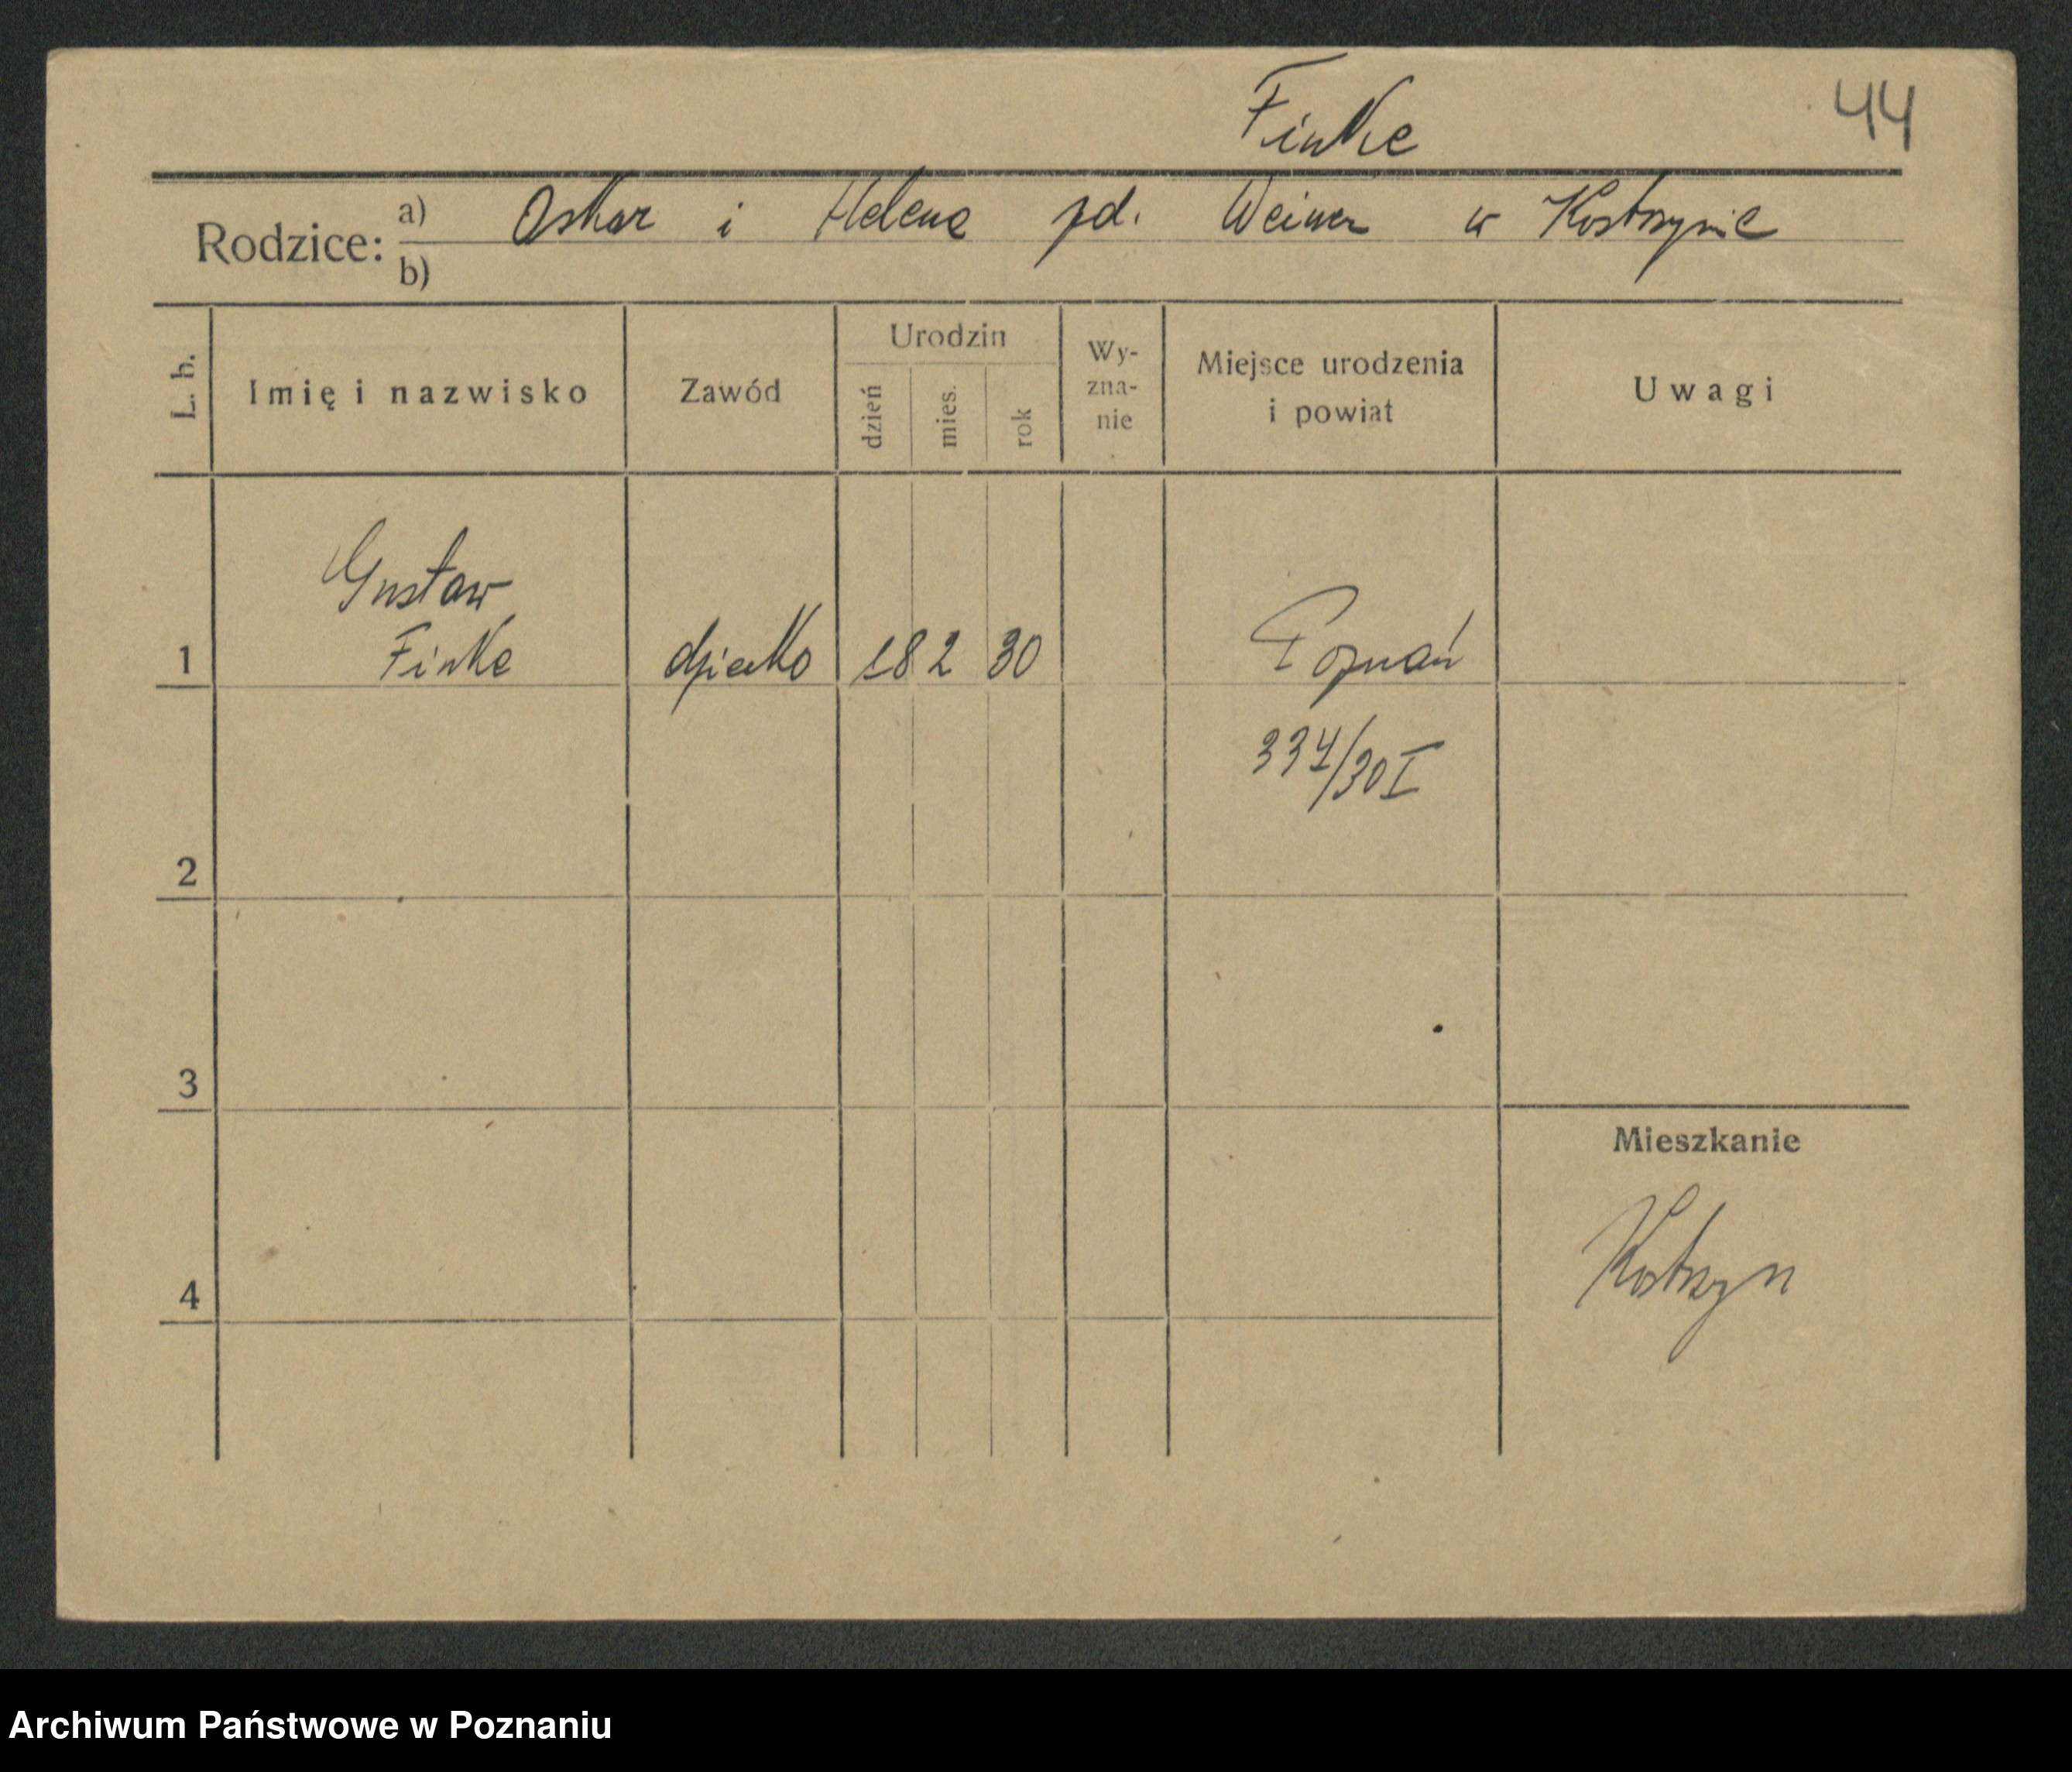 Finke
44
Rodzice: a) Oskar i Helene zd. Weiner w Kostrzynie
b)
L. b.
Imię i nazwisko
Zawód
Urodzin
dzień
mies.
rok
Wy-
zna-
nie
Miejsce urodzenia
i powiat
Uwagi
Gustaw
1 Finke dziecko 18 2 30 Poznań
334/30 I
2
3
Mieszkanie
Kostrzyn
4
Archiwum Państwowe w Poznaniu